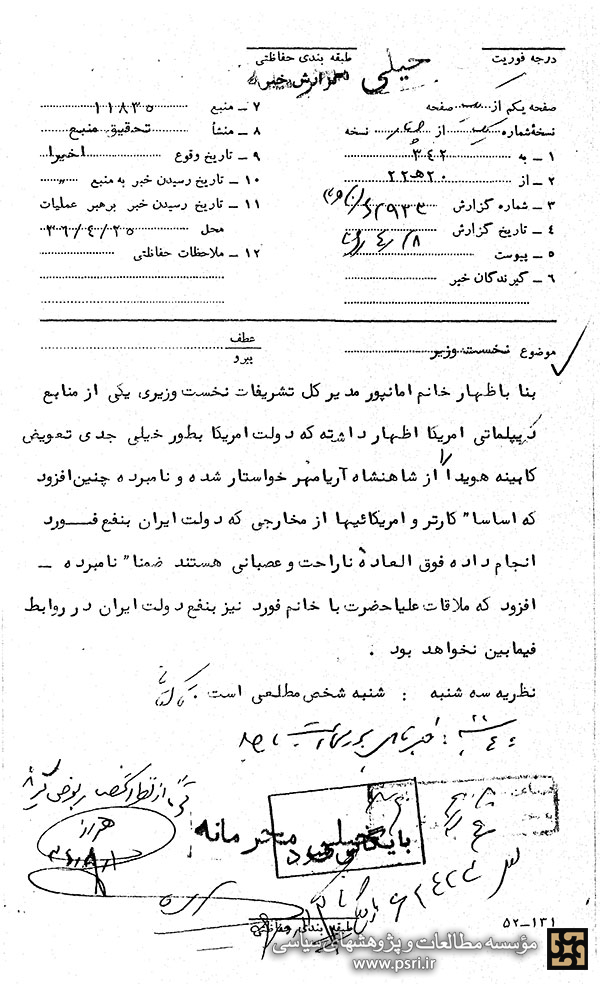 درجه فوریت
طبقه بندی حفاظتی
خیلی
گزارش خبر
صفحه یکم از یک صفحه
نسخه شماره یک از چهار نسخه
۱ – به ۳۴۲
۲ – از ۲۰ هـ ۲۲
۳ – شماره گزارش
۴ – تاریخ گزارش
۵ – پیوست
۶ – گیرندگان خبر
۷ – منبع ۱۱۸۳۵
۸ – منشأ تحقیق منبع
۹ – تاریخ وقوع اخیرا
۱۰ – تاریخ رسیدن خبر به منبع "
۱۱ – تاریخ رسیدن خبر برهبر عملیات
محل ۳۶/۴/۲۵
۱۲ – ملاحظات حفاظتی
موضوع نخست وزیر
عطف
پیرو
بنا باظهار خانم امانپور مدیر کل تشریفات نخست وزیری یکی از منابع
دیپلماتی امریکا اظهار داشته که دولت امریکا بطور خیلی جدی تعویض
کابینه هویدا را از شاهنشاه آریامهر خواستار شده و نامبرده چنین افزود
که اساسا" کارتر و امریکائیها از مخارجی که دولت ایران بنفع فــورد
انجام داده فوق العاده ناراحت و عصبانی هستند ضمنا" نامبرده –
افزود که ملاقات علیاحضرت با خانم فورد نیز بنفع دولت ایران در روابط
فیمابین نخواهد بود .
نظریه سه شنبه : شنبه شخص مطلعی است .
خیلی محرمانه
بایگانی شود
طبقه بندی حفاظتی
۵۲–۱۳۱
مؤسسه مطالعات و پژوهشهای سیاسی
www.psri.ir